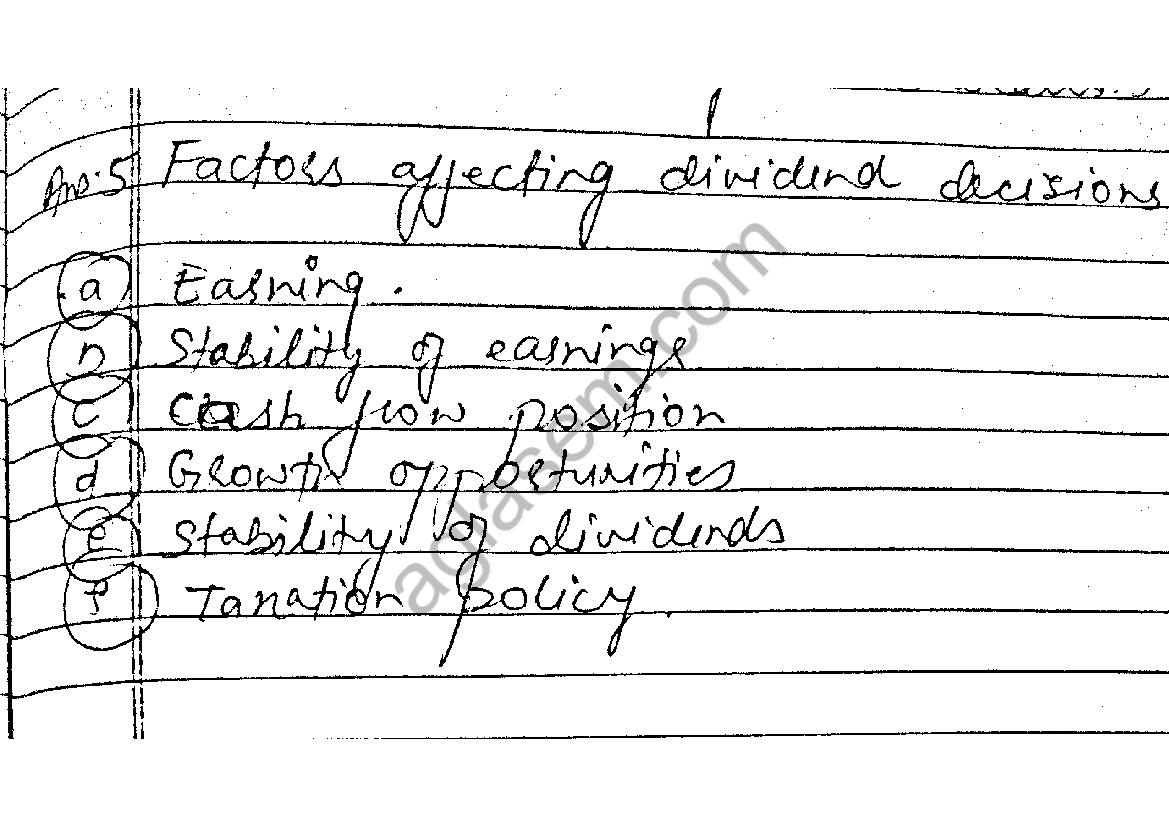 Ans:5 Factors affecting dividend decisions
a Earning.
b Stability of earnings
c Cash flow position
d Growth opportunities
e Stability of dividends
f Taxation policy.
aglasem.com